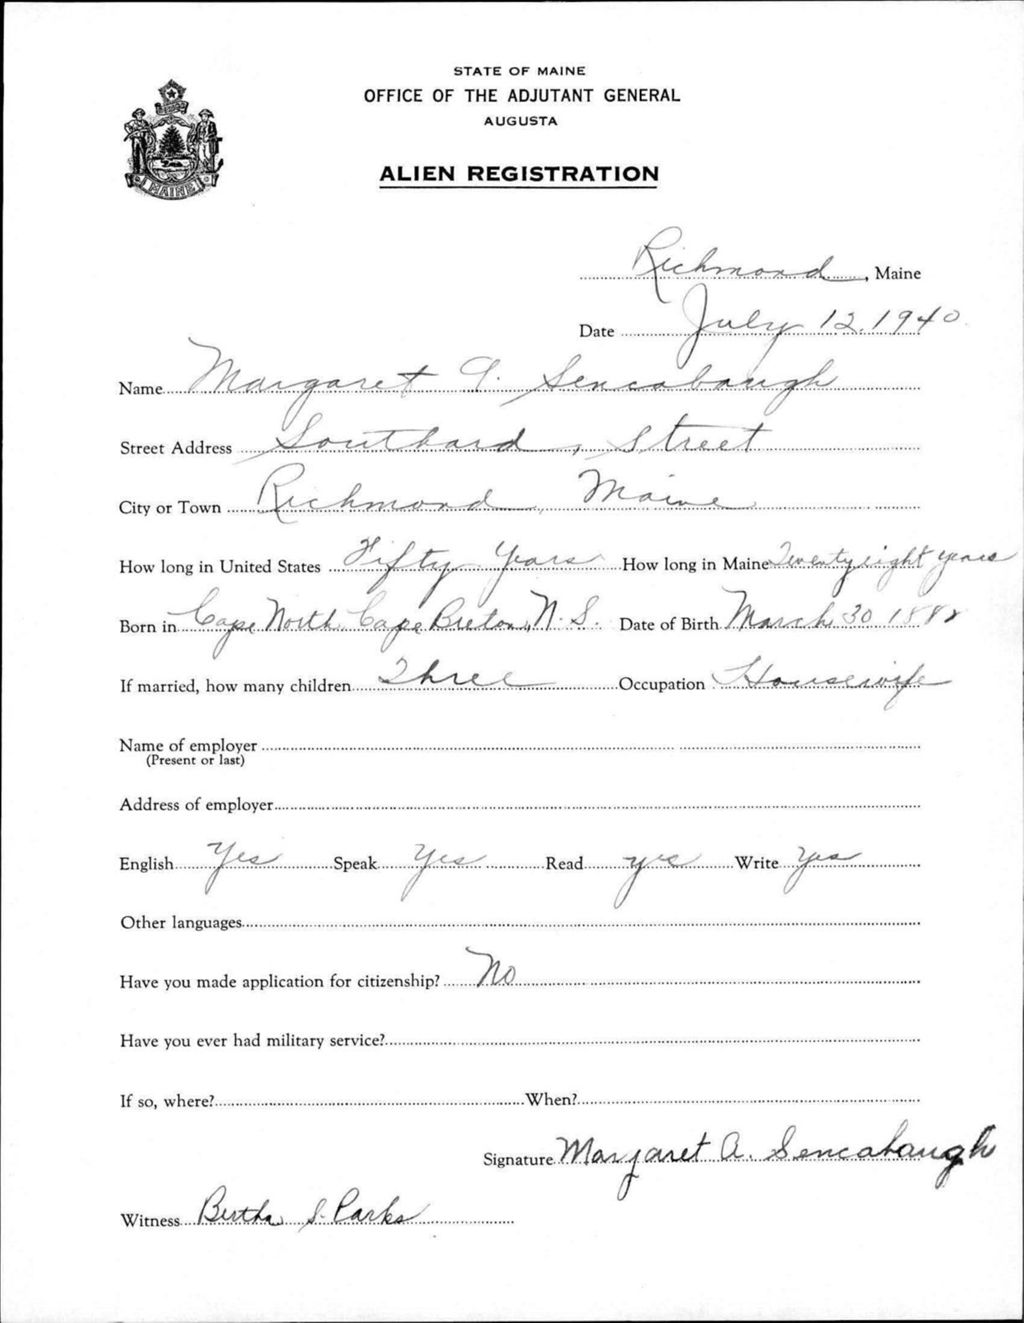 STATE OF MAINE
OFFICE OF THE ADJUTANT GENERAL
AUGUSTA
ALIEN REGISTRATION
MAINE
Richmond, Maine
Date July 12, 1940
Name Margaret A. Sencabaugh
Street Address Southard, Street
City or Town Richmond, Maine
How long in United States Fifty Years How long in Maine Twenty eight years
Born in Cape North, Cape Breton, N. S. Date of Birth March 30
If married, how many children Three Occupation Housewife
Name of employer
(Present or last)
Address of employer
English Yes Speak Yes Read yes Write Yes
Other languages
Have you made application for citizenship? No
Have you ever had military service?
If so, where? When?
Signature Margaret A. Sencabaugh
Witness Bertha S. Parks